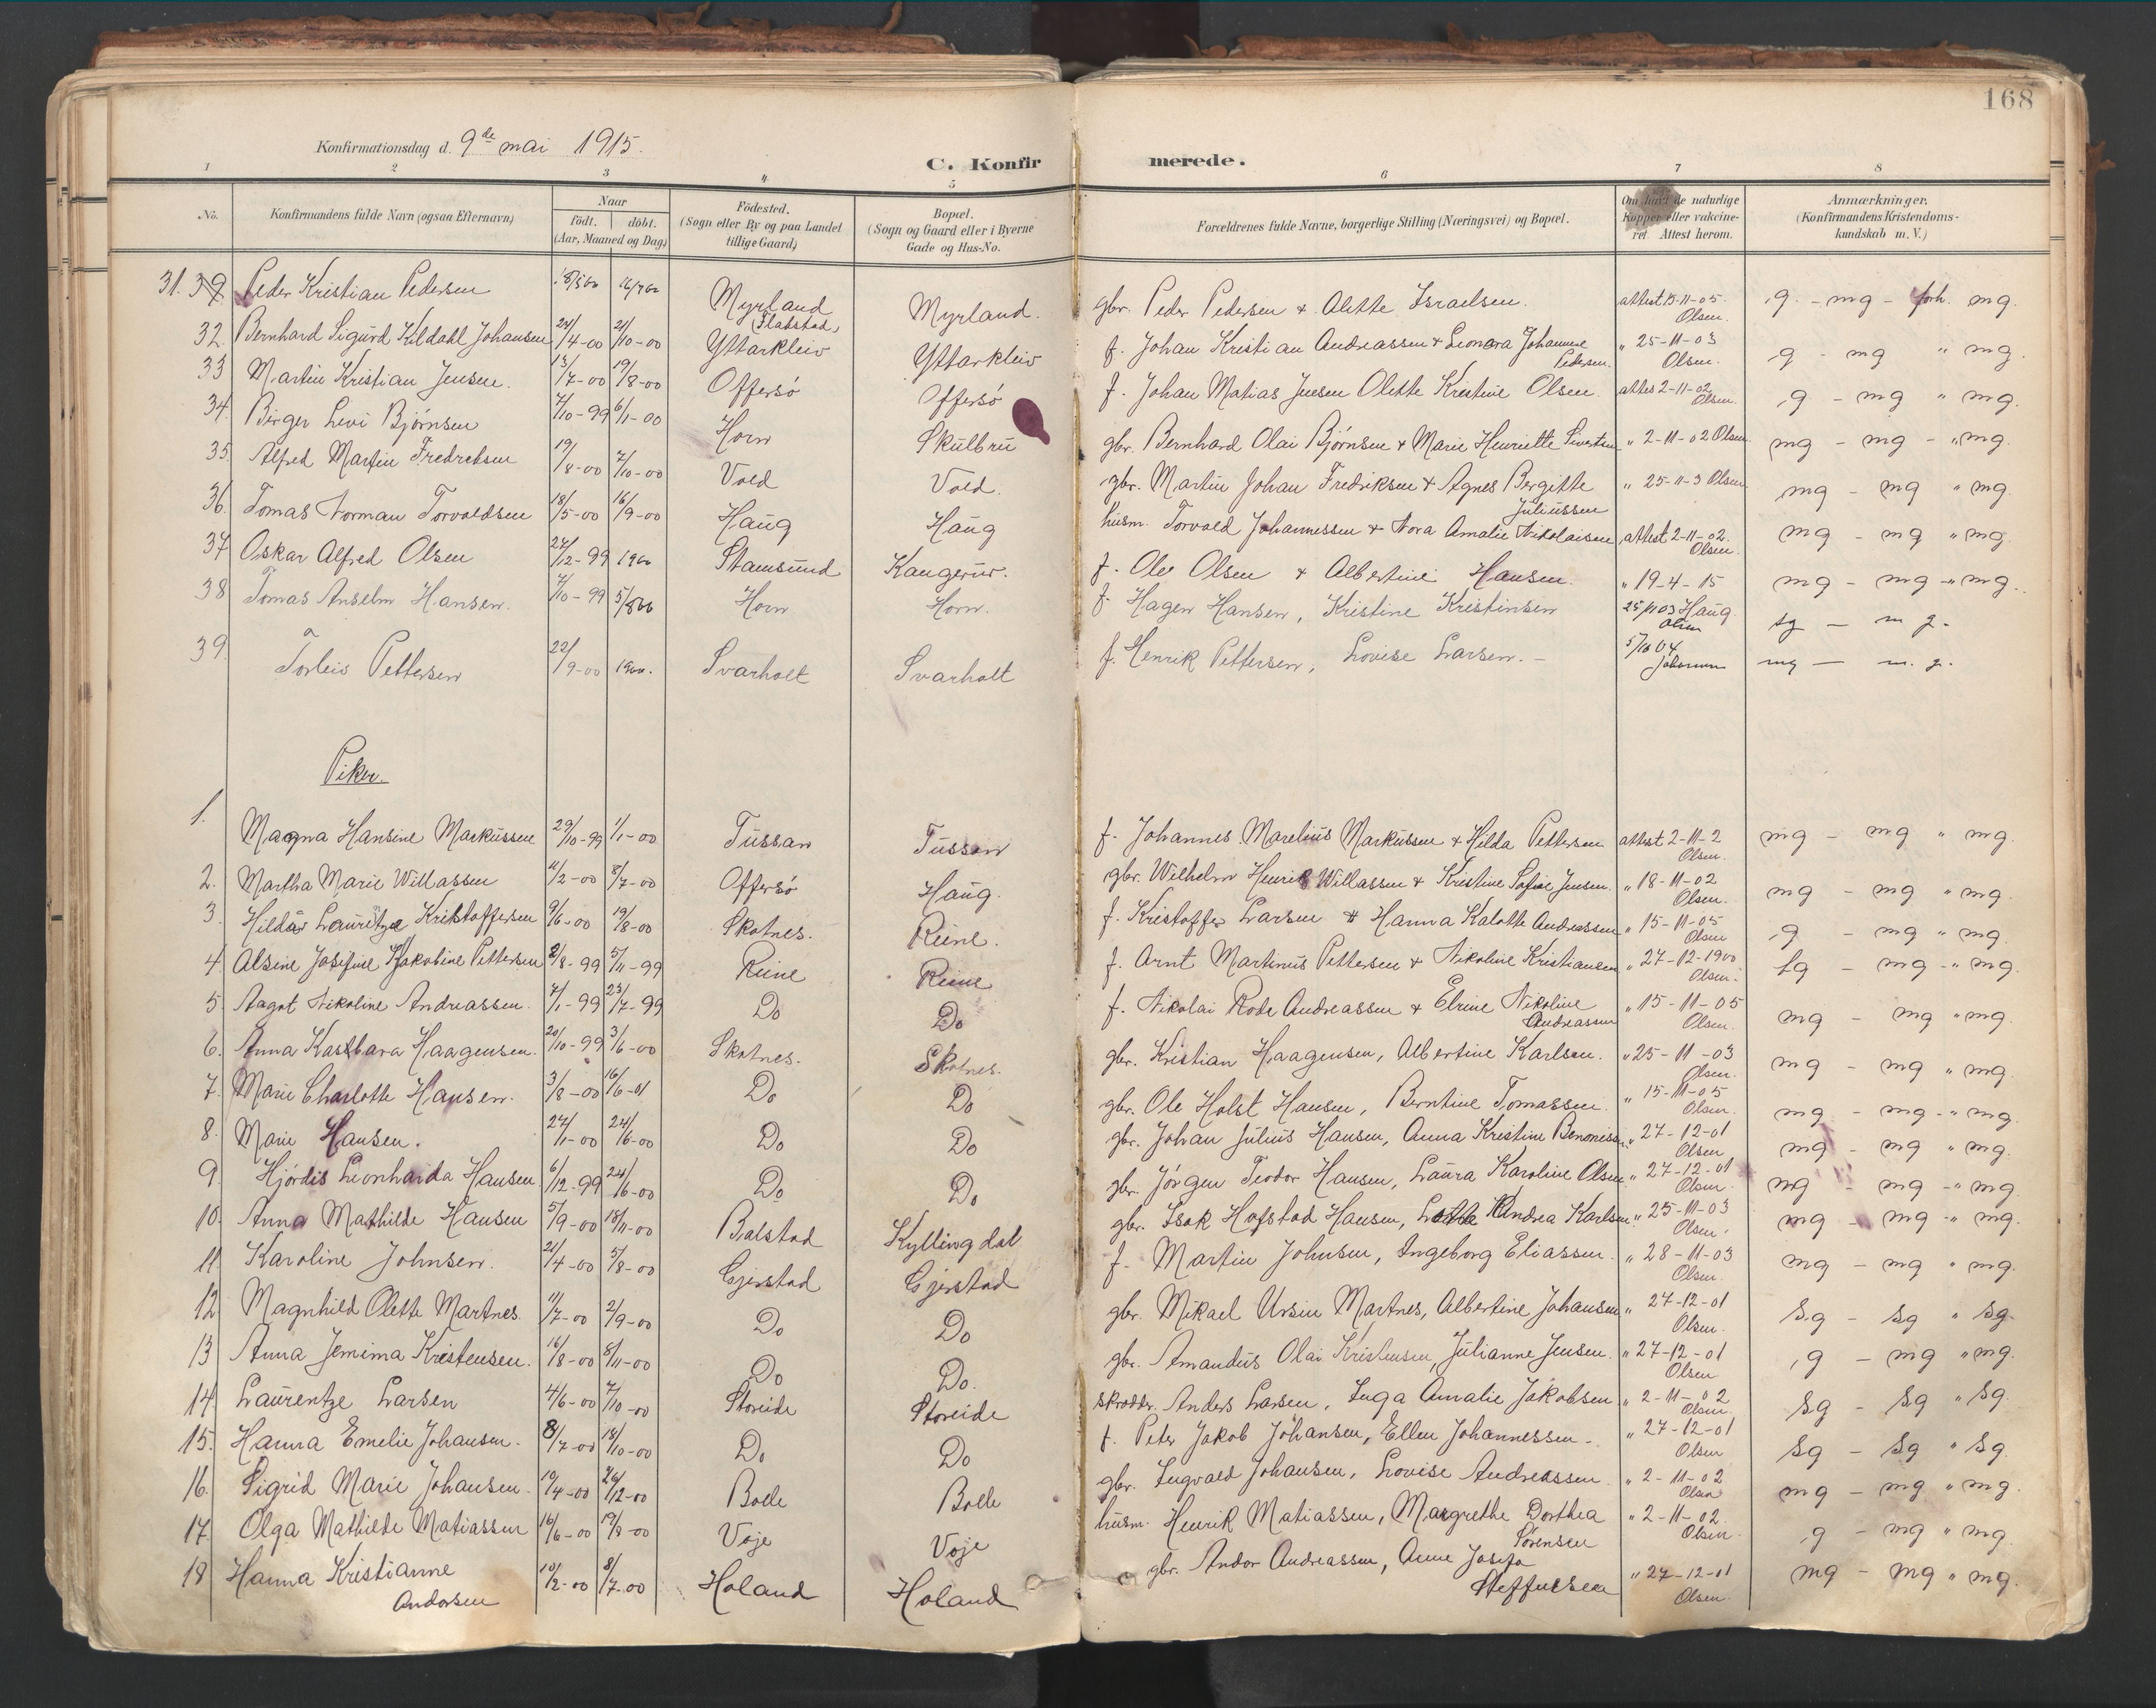 168
Konfirmationsdag d. 9de mai 1915.
C. Konfirmerede.
1 2 3 4 5 6 7 8
No. Konfirmandens fulde Navn (ogsaa Efternavn) Naar født. døbt. (Aar, Maaned og Dag) Födested. (Sogn eller By og paa Landet tillige Gaard) Bopæl. (Sogn og Gaard eller i Byerne Gade og Hus-No. Forældrenes fulde Navne, borgerlige Stilling (Næringsvei) og Bopæl. Om havt de naturlige Kopper eller vakcineret. Attest herom. Anmærkninger, (Konfirmandens Kristendomskundskab m. V.)
31. 39 Peder Kristian Pedersen Myrland Myrland. gbr. Peder Pedersen & Alette Israelsen. attest 15-11-05 Olsen. g. - mg - forh. mg.
32. Bernhard Sigurd Kildahl Johansen 24/4-00 21/10-00 Yttarkleiv Yttarkleiv f. Johan Kristian Andreassen & Leonora Johanne Pedersen. " 25-11-03 Olsen. g - mg " mg.
33 Martin Kristian Jensen. 13/7-00 19/8-00 Offersö Offersö f. Johan Matias Jensen Olette Kristine Olsen. attes 2-11-02 Olsen. g - mg " mg.
34. Birger Levi Bjørnsen 7/10-99 6/1-00 Horn Skulbru gbr. Bernhard Olai Bjørnsen & Marie Henriette Sivertsen " 2-11-02 Olsen mg - mg - " mg.
35. Alfred Martin Fredreksen 19/8-00 7/10-00 Vold Vold. gbr. Martin Johan Fredriksen & Agnes Bergitte Juliussen " 25-11-3 Olsen mg - mg " mg.
36. Tomas Norman Torvaldsen 18/5-00 16/9-00 Haug Haug husm. Torvald Johannessen & Nora Amalie Nikolaisen attest 2-11-02. Olsen. mg - mg " mg.
37 Oskar Alfred Olsen 24/12-99 1900 Stamsund Kangerur. f. Ole Olsen & Albertine Hansen. " 19-4-15 mg - mg - " mg.
38 Tomas Anselm Hansen. 7/10-99 Horn Horn. f. Hagen Hansen, Kristine Kristinsen 25/11 03 Haug Olsen tg - m g.
39. Torleiv Pettersen 22/9-00 1900. Svarholt Svarholt f. Henrik Pettersen, Lovise Larsen. - 5/10 04 mg - m. g.
Piker.
1. Magna Hansine Markussen 29/10-99 1/1-00 Tussan Tussan f. Johannes Marelius Markussen & Hilda Pettersen attest 2-11-2 Olsen. mg - mg " mg
2. Martha Marie Willassen 11/2-00 8/7-00 Offersö Haug. gbr. Wilhelm Henrik Willassen & Kristine Sofie Jensen. " 18-11-02 Olsen. mg - mg " mg
3. Hildar Lauritze Kristoffersen 9/6-00 19/8-00 Skotnes. Reine. f. Kristoffer Larsen & Hanna Kalotte Andreassen " 15-11-05 Olsen g - mg " mg.
4. Alsine Josefine Jakobine Pettersen 2/8-99 5/11-99 Reine Reine f. Arnt Martinus Pettersen & Nikoline Kristiansen " 27-12-1900 Olsen. tg - mg - " mg.
5. Aagot Nikoline Andreassen. 7/1-99 23/7-99 Do Do f. Nikolai Rode Andreassen & Elrine Nikoline Andreassen " 15-11-05 Olsen. mg - mg " mg.
6. Anna Kastbara Haagensen. 20/10-99 3/6-00 Skotnes. Skotnes. gbr. Kristian Haagensen, Albertine Karlsen. " 25-11-03 Olsen. mg - mg " mg.
7. Marie Charlotte Hansen. 3/8-00 16/6-01 Do Do gbr. Ole Holst Hansen, Berntine Tomassen. " 15-11-05 Olsen. mg - mg - " mg.
8. Marie Hansen. 27/1-00 24/6-00 Do Do gbr. Johan Julius Hansen, Anna Kristine Benonisen " 27-12-01 Olsen mg - mg " mg.
9. Hjördis Leonharda Hansen 6/12-99 24/6-00 Do Do gbr. Jörgen Teodor Hansen, Laura Karoline Olsen " 27-12-01 Olsen. mg - mg - " mg.
10. Anna Mathilde Hansen 5/9-00 18/11-00 Balstad Kyllingdal gbr. Isak Hofstad Hansen, Lotte Andrea Karlsen " 25-11-03 Olsen. mg - mg - " mg.
11. Karoline Johnsen. 21/4-00 5/8-00 Gjerstad Gjerstad f. Martin Johnsen, Ingeborg Eliassen. " 28-11-03 Olsen. mg - mg " mg.
12 Magnhild Olette Martnes. 11/7-00 2/9-00 Do Do gbr. Mikael Ursin Martnes, Albertine Johansen " 27-12-01 Olsen. Sg - Sg " Sg.
13 Anna Jemima Kristensen. 16/8-00 8/11-00 Do Do. gbr. Amandus Olai Kristensen, Julianne Jensen. " 27-12-01 Olsen g - mg " mg.
14. Laurentze Larsen 4/6-00 7/10-00 Storeide Storeide skrædder. Anders Larsen, Inga Amalie Jakobsen " 2-11-02 Olsen. Sg - Sg " Sg.
15. Hanna Emelie Johansen. 8/7-00 14/10-00 Do Do f. Peter Jakob Johansen, Ellen Johannessen - " 27-12-01 Olsen Sg - Sg " Sg.
16. Sigrid Marie Johansen. 19/4-00 26/12-00 Bolle Bolle gbr. Ingvald Johansen, Lovise Andreassen. " 2-11-02 Olsen mg - mg " mg.
17. Olga Mathilde Matiassen 16/6-00 19/8-00 Voje Voje husm. Henrik Matiassen, Margrethe Dorthea Sörensen " 2-11-02. Olsen. g - mg " mg.
18 Hanna Kristianne Andorsen 10/2-00 8/7-00 Holand Holand gbr. Andor Andreassen, Anne Josefa Steffensen " 27-12-01 Olsen. mg - mg " mg.